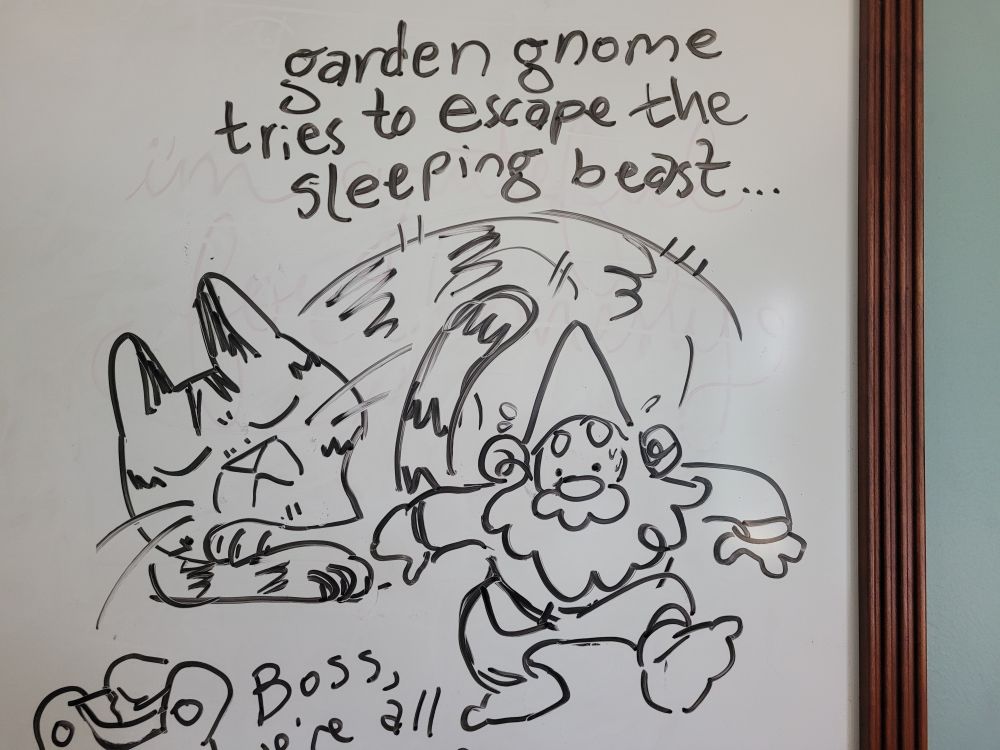 garden gnome
tries to escape the
sleeping beast...
i'm
Boss,
we're all